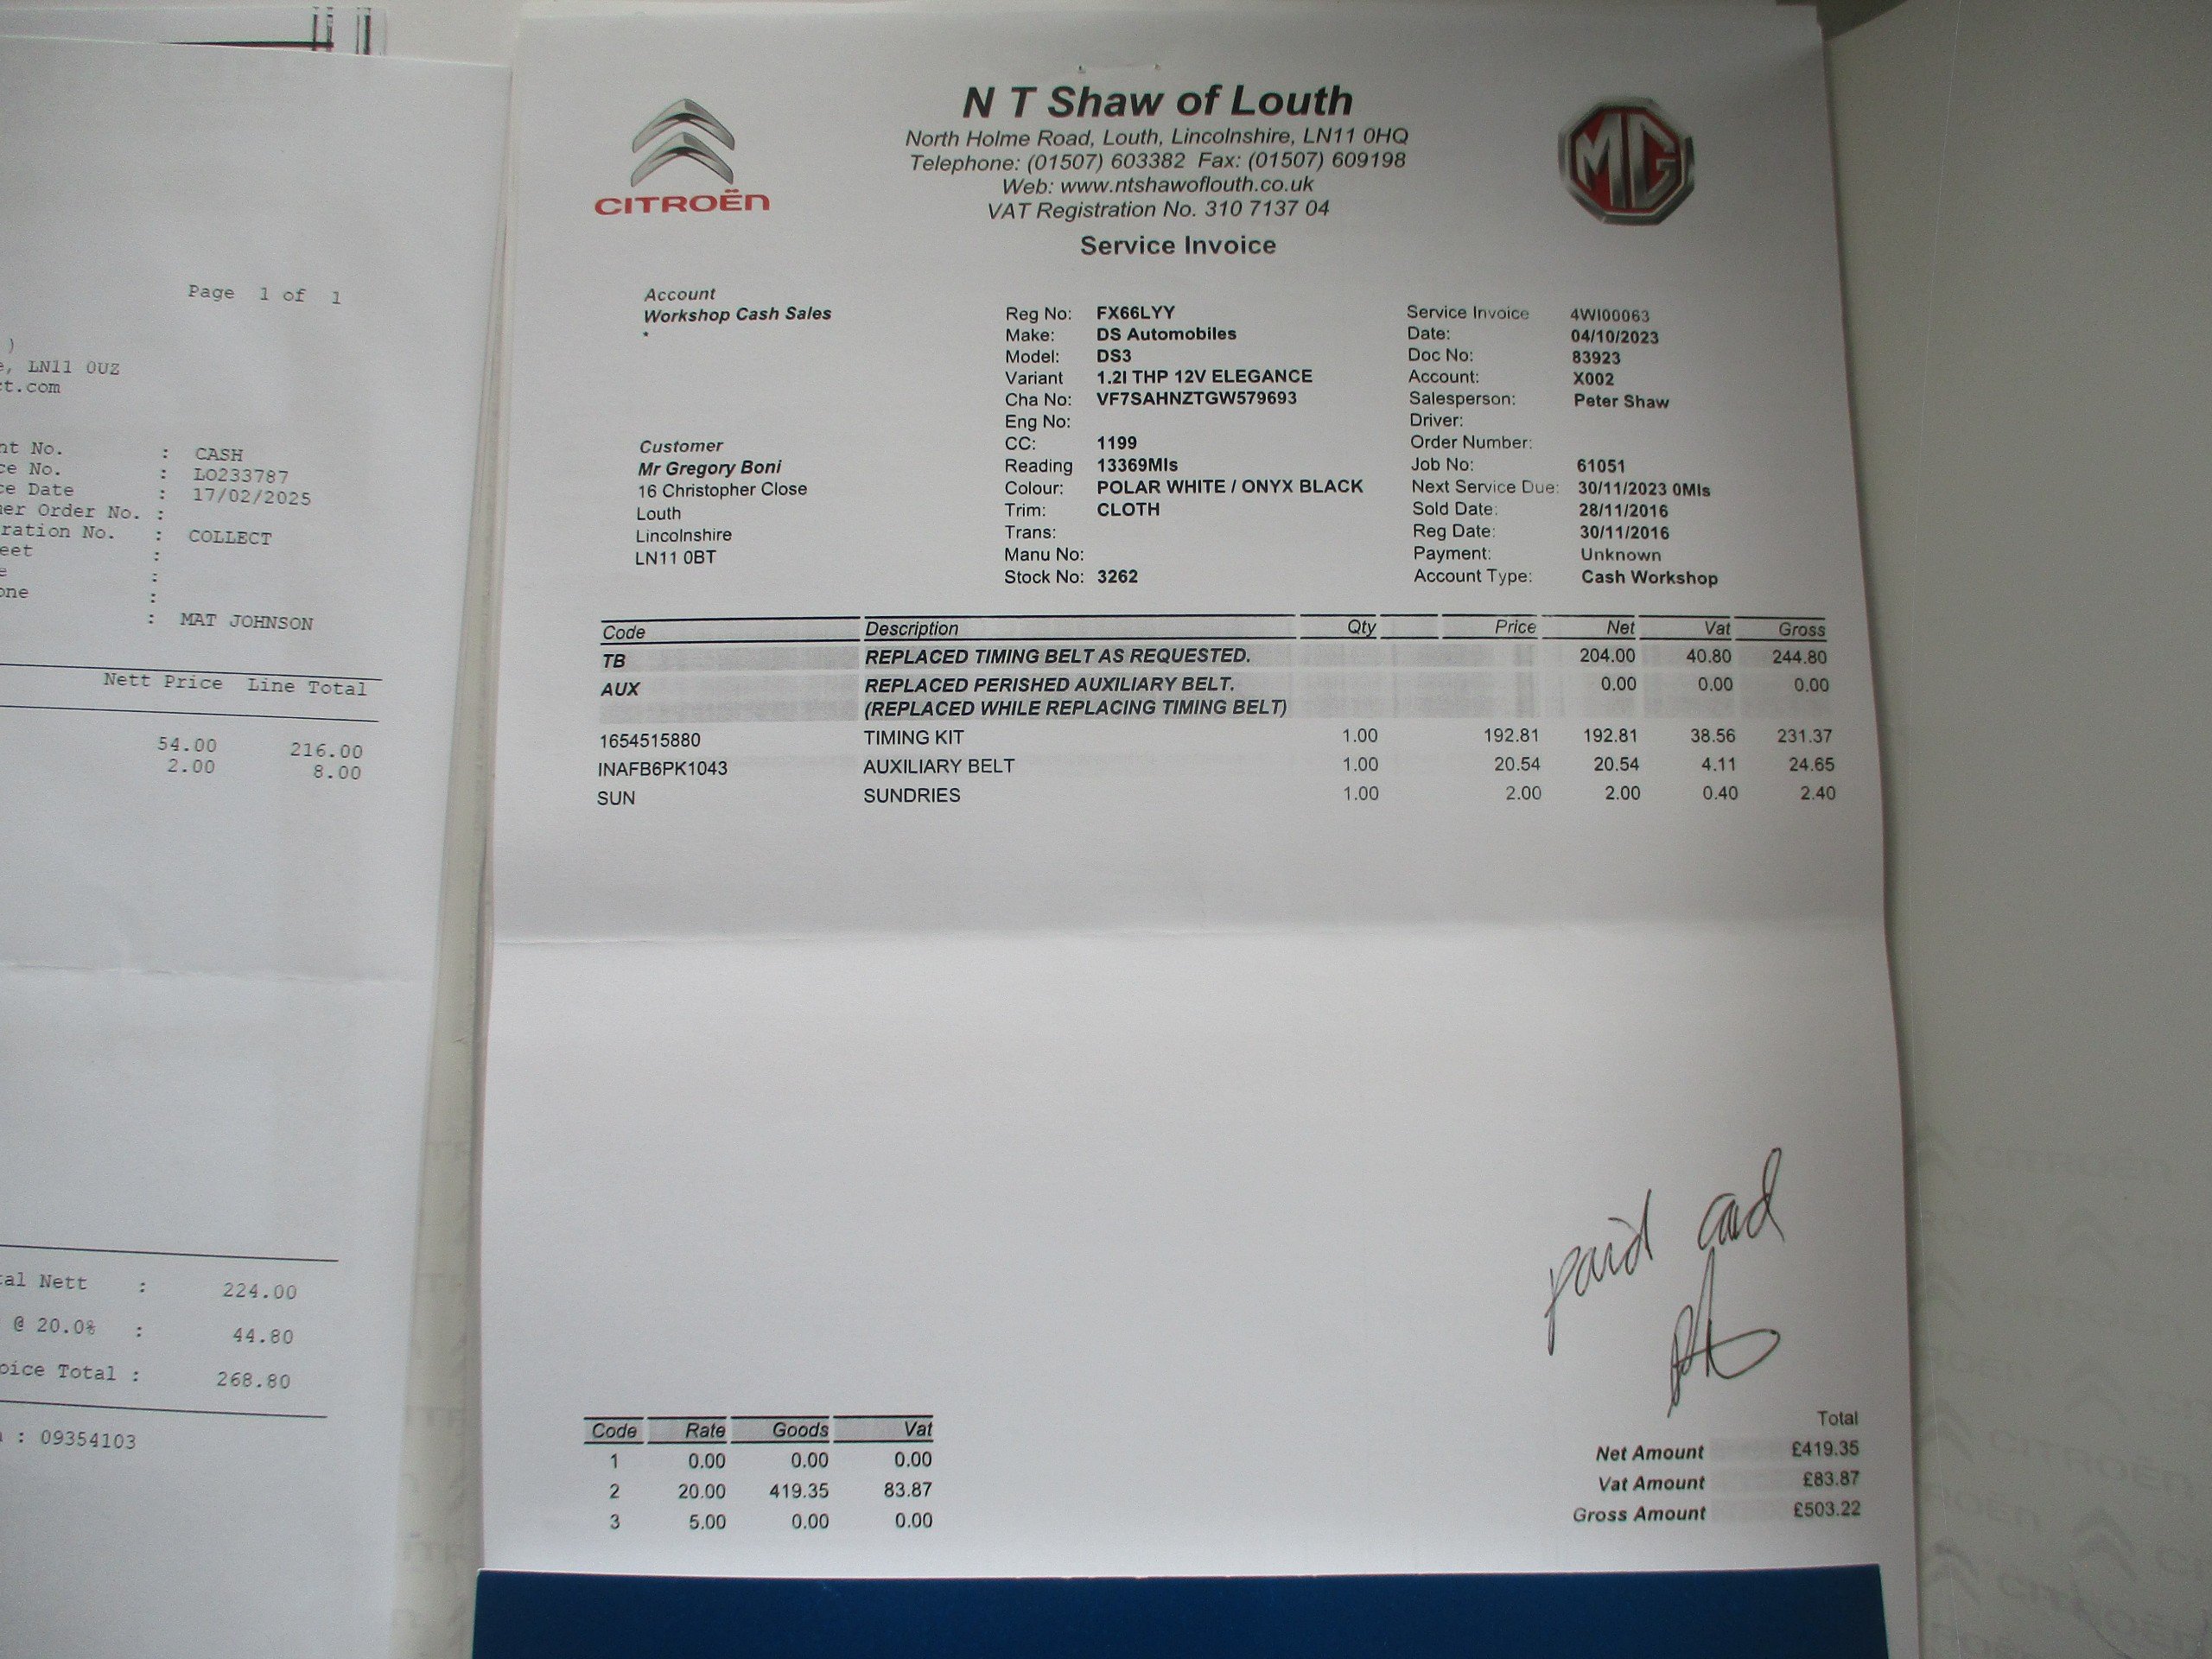 Page 1 of 1
)
, LN11 0UZ
ct.com
nt No. : CASH
ce No. : LO233787
ce Date : 17/02/2025
er Order No. :
ration No. : COLLECT
eet :
e :
one :
: MAT JOHNSON
Nett Price Line Total
54.00 216.00
2.00 8.00
al Nett : 224.00
@ 20.0% : 44.80
oice Total : 268.80
: 09354103
CITROËN
N T Shaw of Louth
North Holme Road, Louth, Lincolnshire, LN11 0HQ
Telephone: (01507) 603382 Fax: (01507) 609198
Web: www.ntshawoflouth.co.uk
VAT Registration No. 310 7137 04
Service Invoice
MG
Account
Workshop Cash Sales
*
Customer
Mr Gregory Boni
16 Christopher Close
Louth
Lincolnshire
LN11 0BT
Reg No: FX66LYY
Make: DS Automobiles
Model: DS3
Variant 1.2I THP 12V ELEGANCE
Cha No: VF7SAHNZTGW579693
Eng No:
CC: 1199
Reading 13369Mls
Colour: POLAR WHITE / ONYX BLACK
Trim: CLOTH
Trans:
Manu No:
Stock No: 3262
Service Invoice 4WI00063
Date: 04/10/2023
Doc No: 83923
Account: X002
Salesperson: Peter Shaw
Driver:
Order Number:
Job No: 61051
Next Service Due: 30/11/2023 0Mls
Sold Date: 28/11/2016
Reg Date: 30/11/2016
Payment: Unknown
Account Type: Cash Workshop
Code Description Qty Price Net Vat Gross
TB REPLACED TIMING BELT AS REQUESTED. 204.00 40.80 244.80
AUX REPLACED PERISHED AUXILIARY BELT. 0.00 0.00 0.00
(REPLACED WHILE REPLACING TIMING BELT)
1654515880 TIMING KIT 1.00 192.81 192.81 38.56 231.37
INAFB6PK1043 AUXILIARY BELT 1.00 20.54 20.54 4.11 24.65
SUN SUNDRIES 1.00 2.00 2.00 0.40 2.40
paid card
Code Rate Goods Vat
1 0.00 0.00 0.00
2 20.00 419.35 83.87
3 5.00 0.00 0.00
Total
Net Amount £419.35
Vat Amount £83.87
Gross Amount £503.22